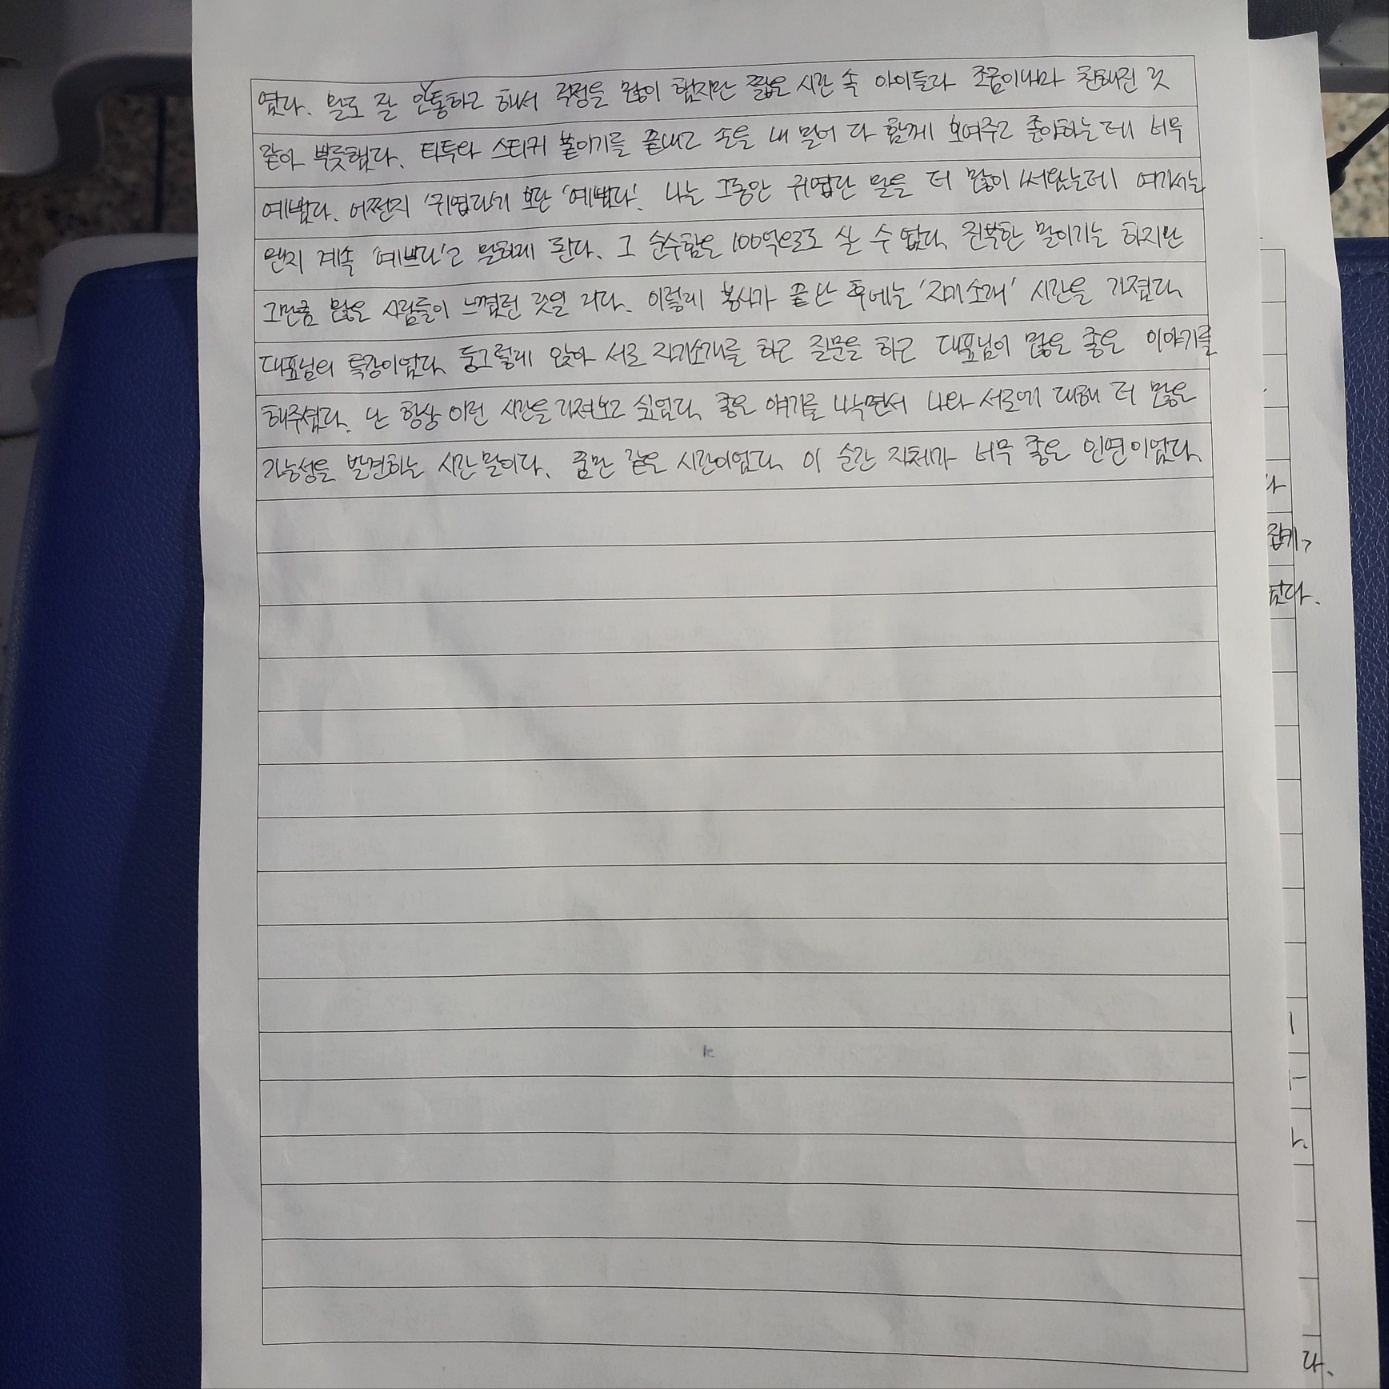 였다. 말도 잘 안통하고 해서 걱정을 많이 했지만 짧은 시간 속 아이들과 조금이나마 친해진 것
같아 뿌듯했다. 타투와 스티커 붙이기를 끝내고 손을 내 밀어 다 함께 보여주고 좋아하는데 너무
예뻤다. 어쩐지 '귀엽다'기 보단 '예뻤다'. 나는 그동안 귀엽단 말을 더 많이 써왔는데 여기서는
왠지 계속 '예쁘다'고 말하게 된다. 그 순수함은 100억으로도 살 수 없다. 진부한 말이기는 하지만
그만큼 많은 사람들이 느꼈던 것일 거다. 이렇게 봉사가 끝난 후에는 '자기소개' 시간을 가졌다.
대표님의 특강이었다. 둥그렇게 앉아 서로 자기소개를 하고 질문을 하고 대표님이 많은 좋은 이야기를
해주셨다. 난 항상 이런 시간을 가져보고 싶었다. 좋은 얘기를 나누면서 나와 서로에 대해 더 많은
가능성을 발견하는 시간 말이다. 꿈만 같은 시간이었다. 이 순간 자체가 너무 좋은 인연이었다.